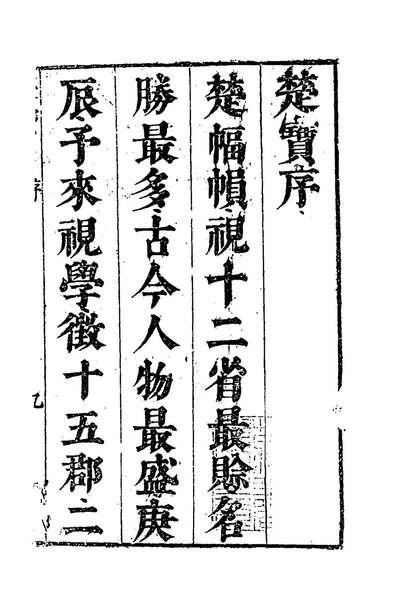 楚寶序
楚幅幀視十二省最賒名
勝最多古今人物最盛庚
辰予來視學徵十五郡二